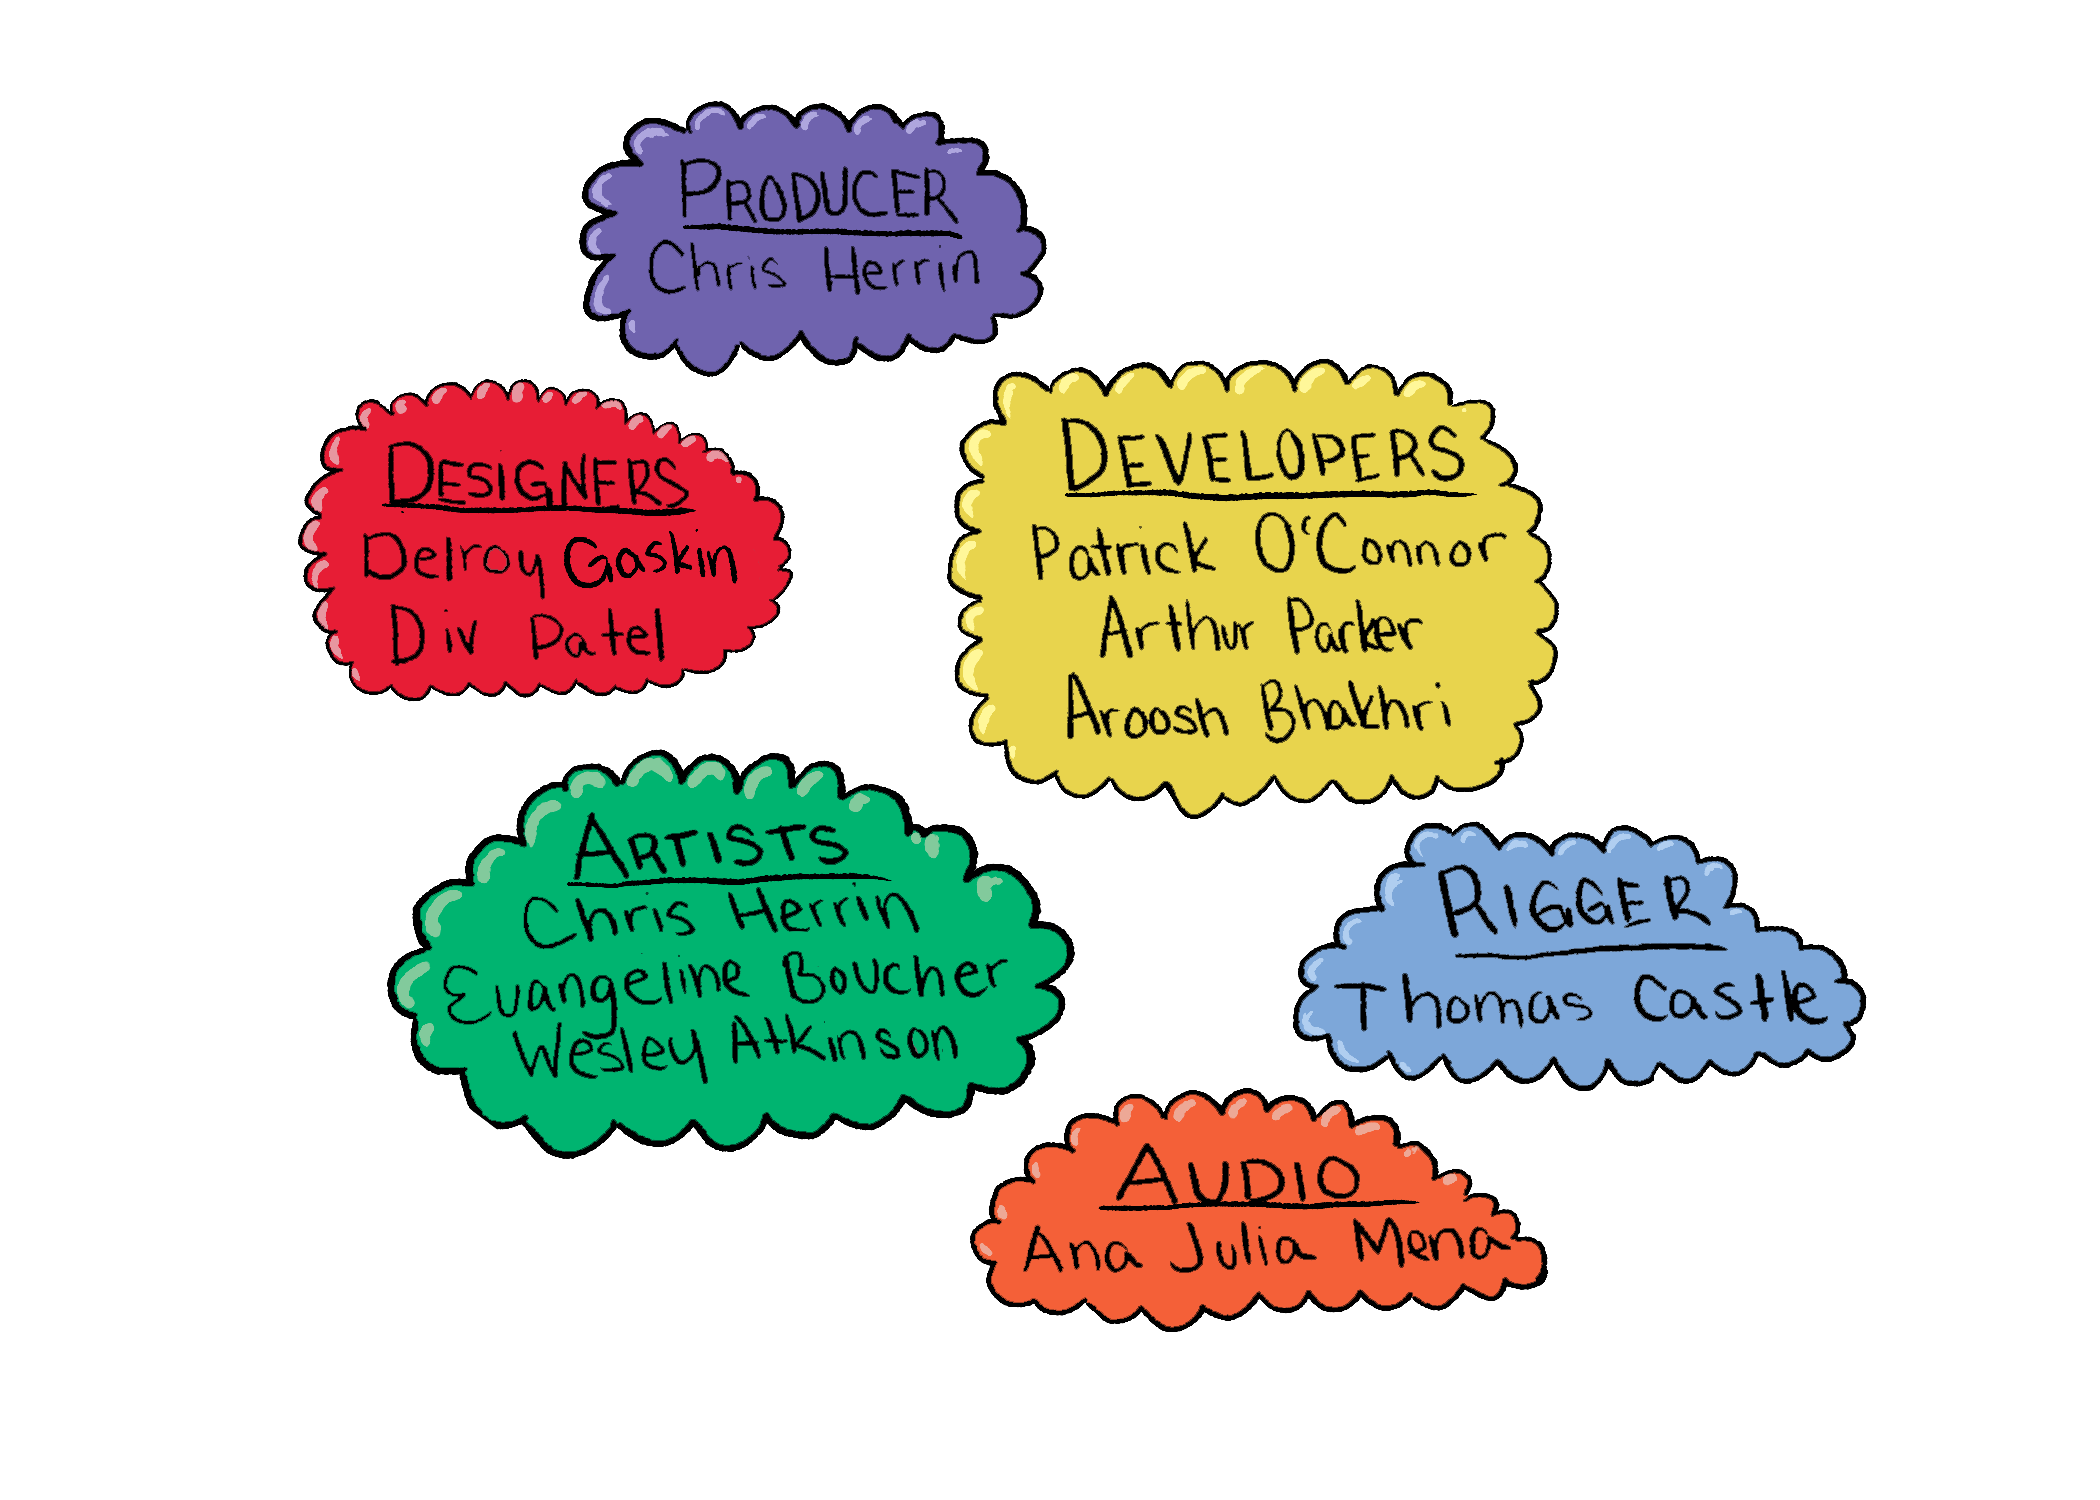 PRODUCER
Chris Herrin
DESIGNERS
Delroy Gaskin
Div Patel
DEVELOPERS
Patrick O'Connor
Arthur Parker
Aroosh Bhakhri
ARTISTS
Chris Herrin
Evangeline Boucher
Wesley Atkinson
RIGGER
Thomas Castle
AUDIO
Ana Julia Mena